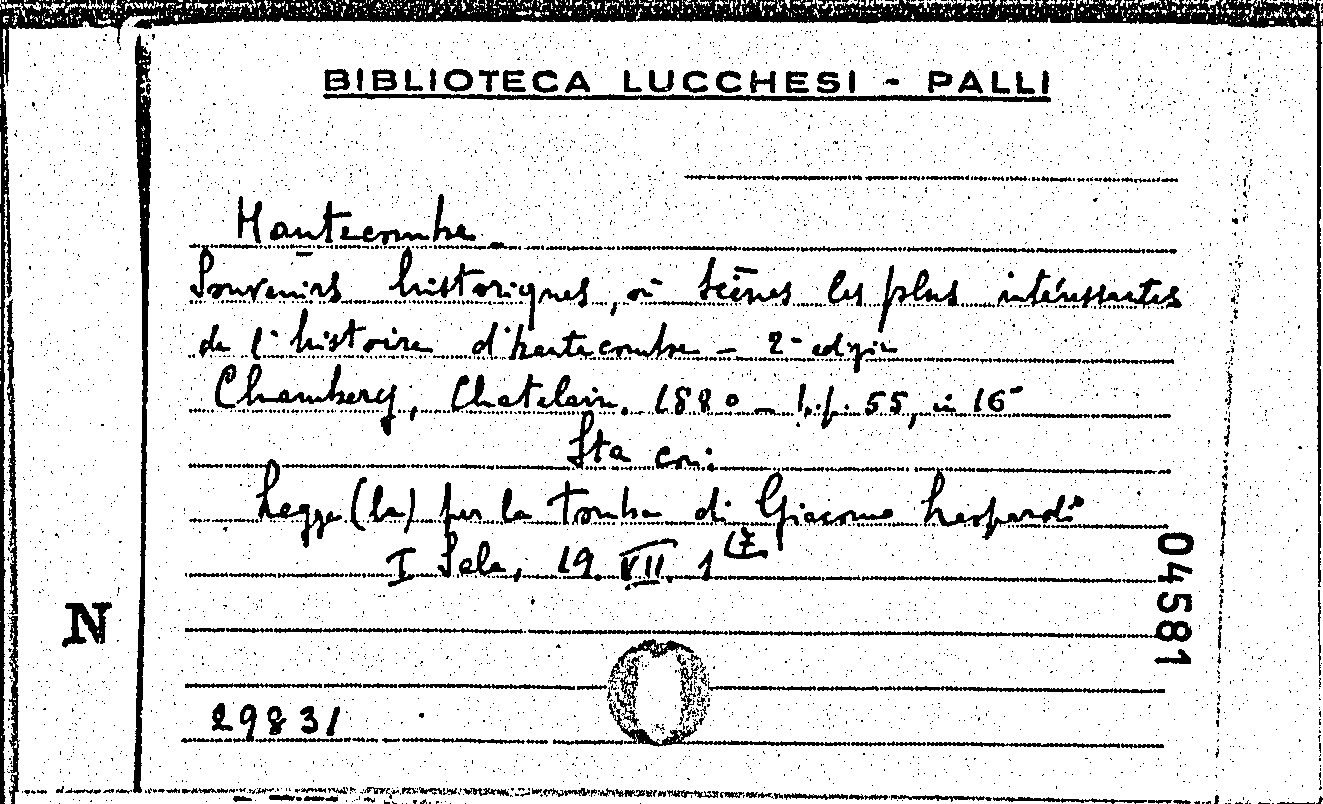 BIBLIOTECA LUCCHESI - PALLI
Hautecombe.
Souvenirs historiques, ou Scènes les plus intéressantes
de l'histoire d'hautecombe - 2ª ediz.
Chambery, Chatelain. 1880 - pp. 55, in 16°
Sta con:
Legge (la) per la tomba di Giacomo Leopardi
I Sala, 19. VII. 1 (7
N
04581
29831